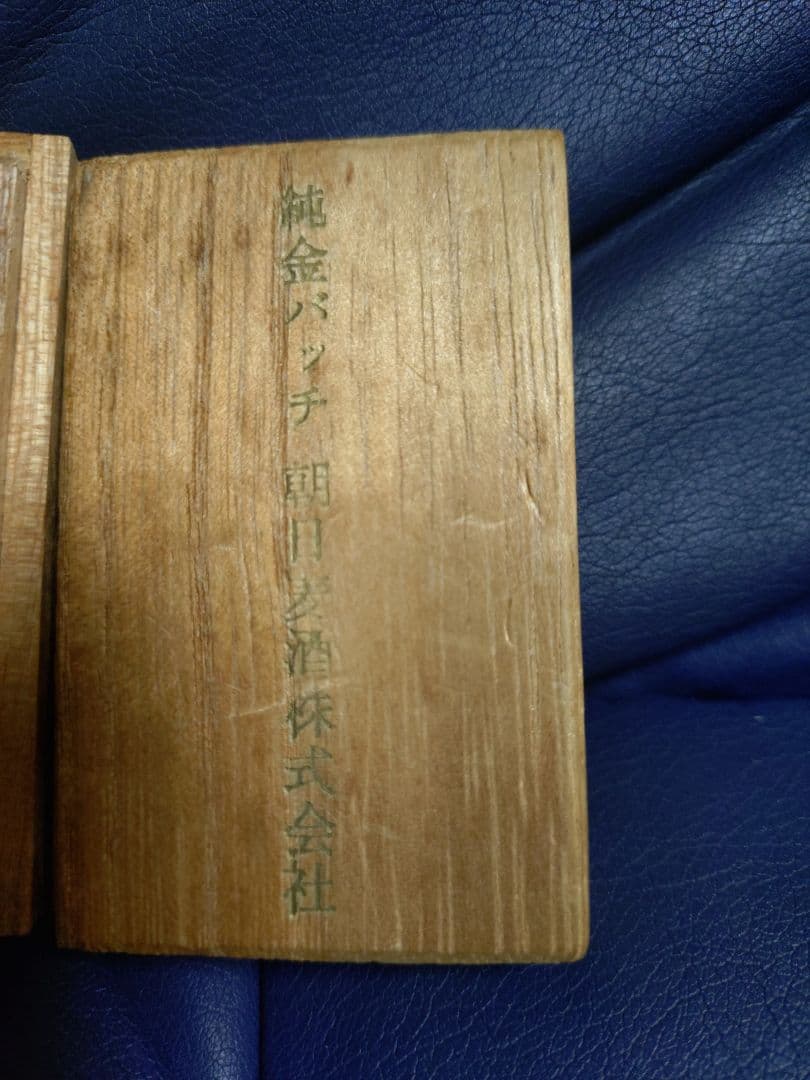 純金バッチ 朝日麦酒株式会社